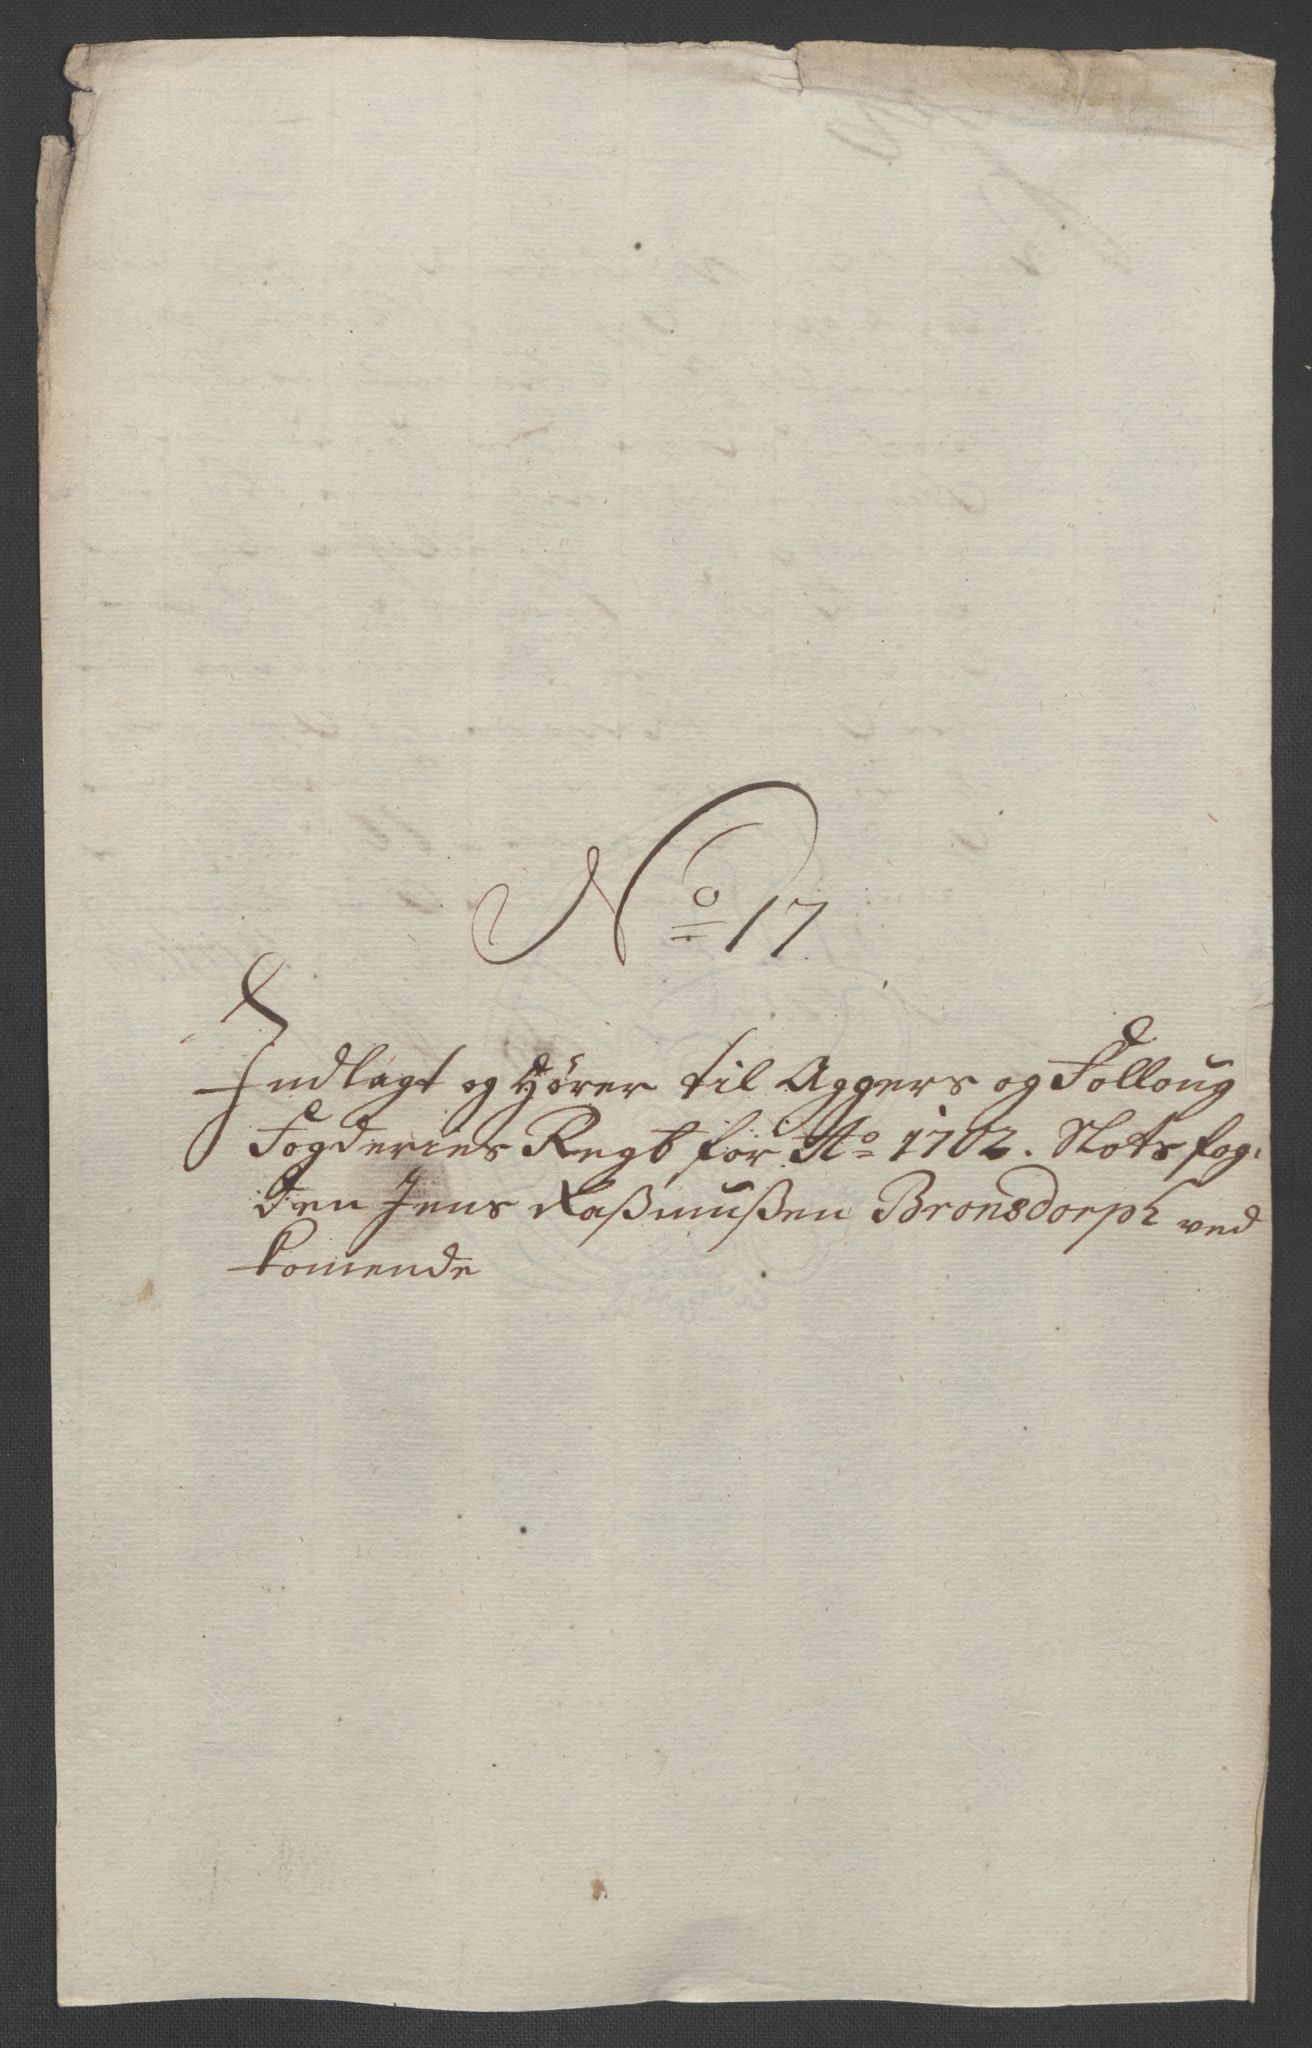 No 17
Indlagt og Hörer til Aggers og Folloug
Fogderies Regb for Ao 1702. Slots fog,
den Jens Raßmußen Bronsdorph ved
komende